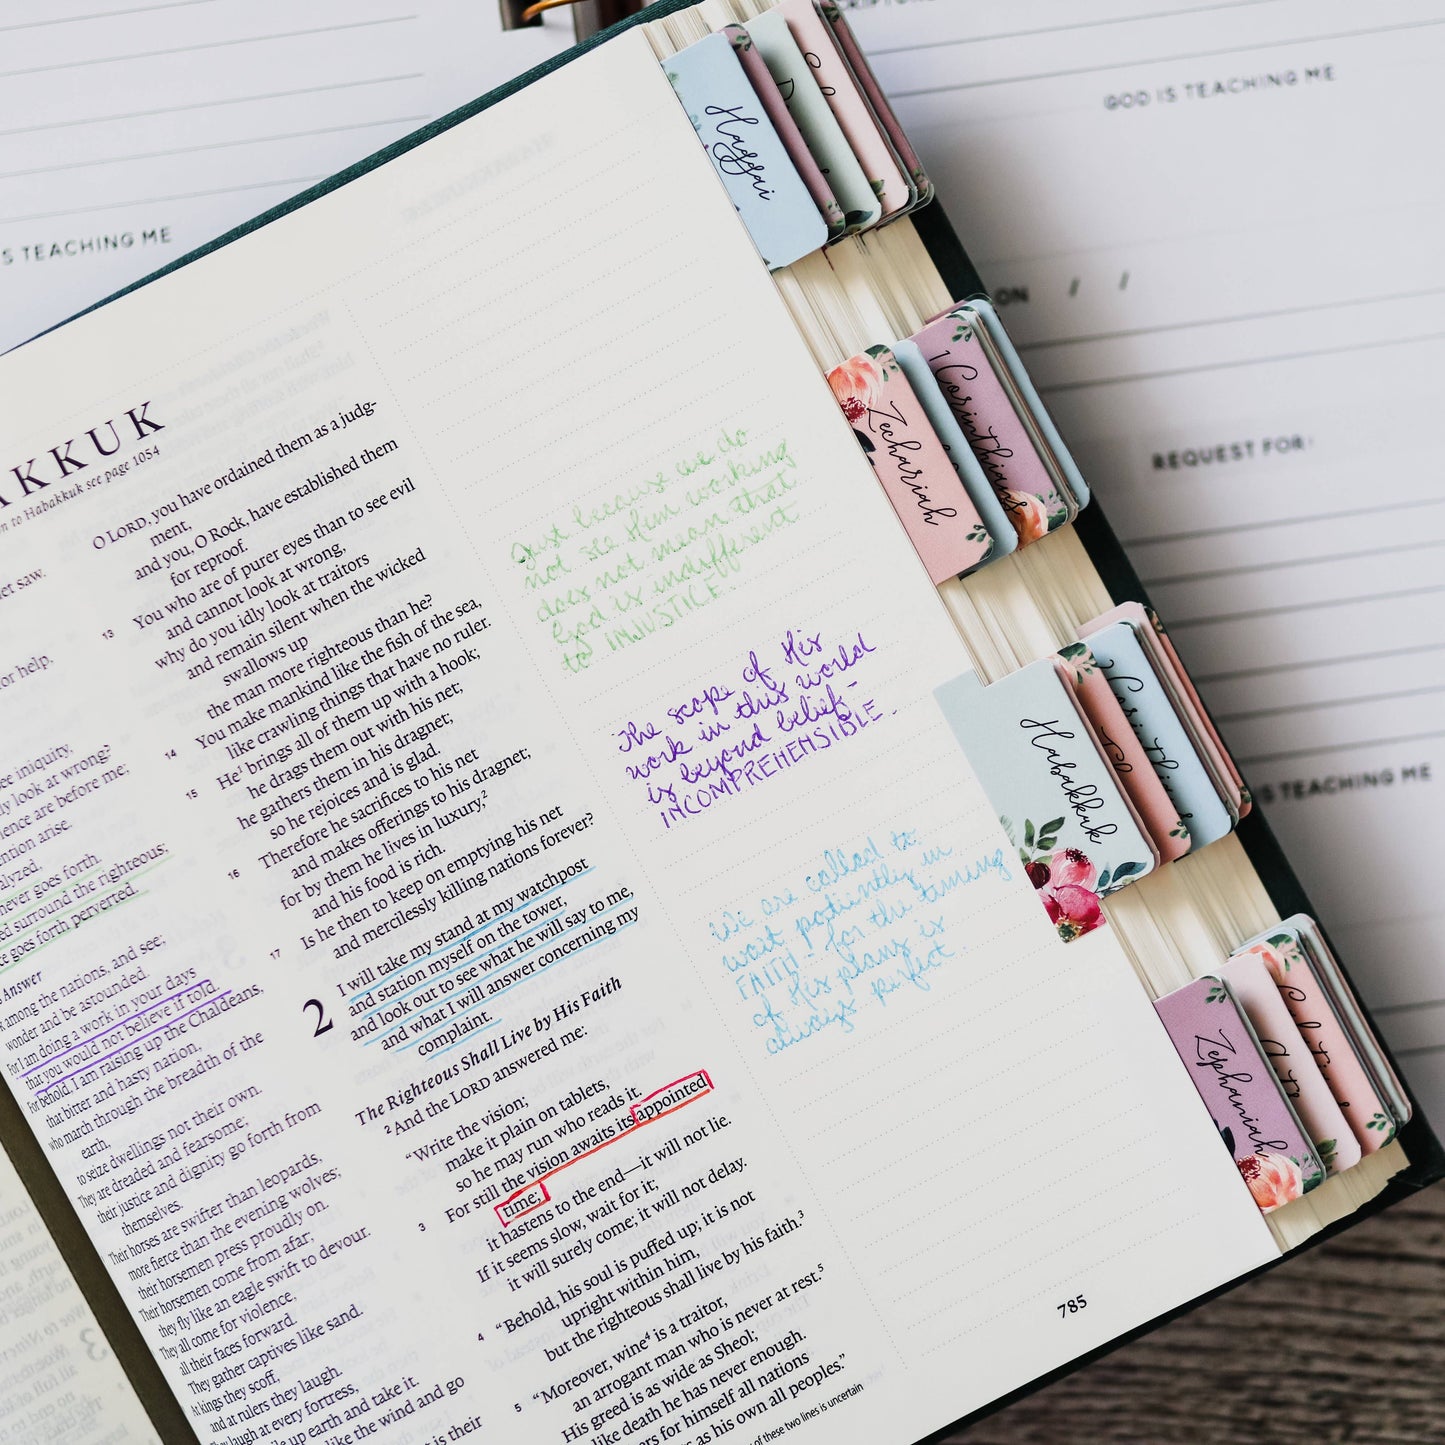 GOD IS TEACHING ME
S TEACHING ME
ON / /
REQUEST FOR:
IS TEACHING ME
Haggai
Zechariah
1 Corinthians
Habakkuk
Zephaniah
AKKUK
n to Habakkuk see page 1054
et saw.
or help,
ee iniquity,
ly look at wrong?
ence are before me;
ntion arise.
alyzed,
never goes forth.
ed surround the righteous;
e goes forth perverted.
s Answer
among the nations, and see;
wonder and be astounded.
For I am doing a work in your days
that you would not believe if told.
For behold, I am raising up the Chaldeans,
that bitter and hasty nation,
who march through the breadth of the
earth,
to seize dwellings not their own.
They are dreaded and fearsome;
their justice and dignity go forth from
themselves.
Their horses are swifter than leopards,
more fierce than the evening wolves;
their horsemen press proudly on.
Their horsemen come from afar;
they fly like an eagle swift to devour.
They all come for violence,
all their faces forward.
They gather captives like sand.
At kings they scoff,
and at rulers they laugh.
They laugh at every fortress,
le up earth and take it.
like the wind and go
t is their
O LORD, you have ordained them as a judg-
ment,
and you, O Rock, have established them
for reproof.
13 You who are of purer eyes than to see evil
and cannot look at wrong,
why do you idly look at traitors
and remain silent when the wicked
swallows up
the man more righteous than he?
14 You make mankind like the fish of the sea,
like crawling things that have no ruler.
15 He¹ brings all of them up with a hook;
he drags them out with his net;
he gathers them in his dragnet;
so he rejoices and is glad.
16 Therefore he sacrifices to his net
and makes offerings to his dragnet;
for by them he lives in luxury,²
and his food is rich.
17 Is he then to keep on emptying his net
and mercilessly killing nations forever?
2 I will take my stand at my watchpost
and station myself on the tower,
and look out to see what he will say to me,
and what I will answer concerning my
complaint.
The Righteous Shall Live by His Faith
2 And the LORD answered me:
“Write the vision;
make it plain on tablets,
so he may run who reads it.
3 For still the vision awaits its appointed
time;
it hastens to the end—it will not lie.
If it seems slow, wait for it;
it will surely come; it will not delay.
4 “Behold, his soul is puffed up; it is not
upright within him,
but the righteous shall live by his faith.³
5 “Moreover, wine⁴ is a traitor,
an arrogant man who is never at rest.⁵
His greed is as wide as Sheol;
like death he has never enough.
ers for himself all nations
s as his own all peoples.”
of these two lines is uncertain
Just because we do
not see Him working
does not mean that
God is indifferent
to INJUSTICE
The scope of His
work in this world
is beyond belief -
INCOMPREHENSIBLE.
We are called to
wait patiently in
FAITH - for the timing
of His plans is
always perfect
785